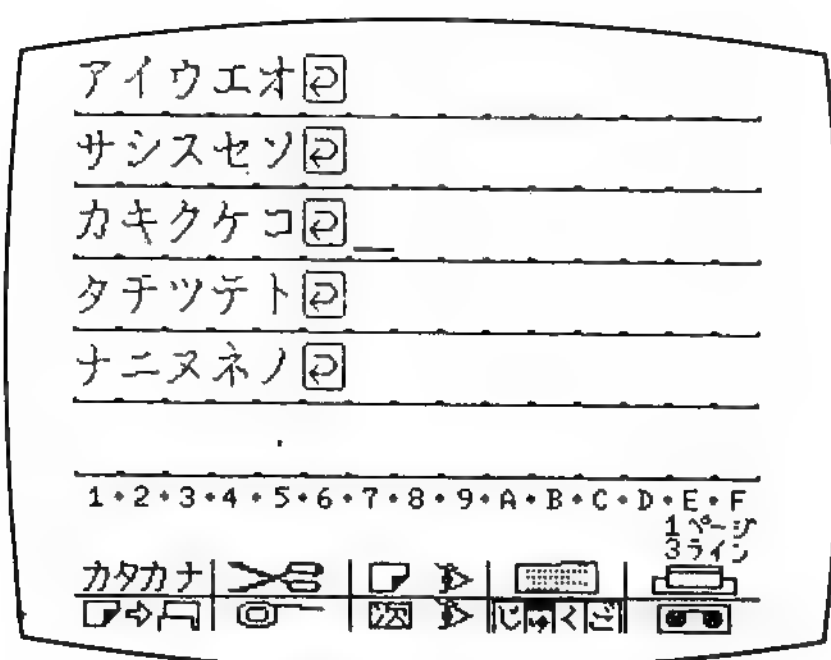 アイウエオ
サシスセソ
カキクケコ
タチツテト
ナニヌネノ
1・2・3・4・5・6・7・8・9・A・B・C・D・E・F
1ページ
3ライン
カタカナ
次 じゅくご